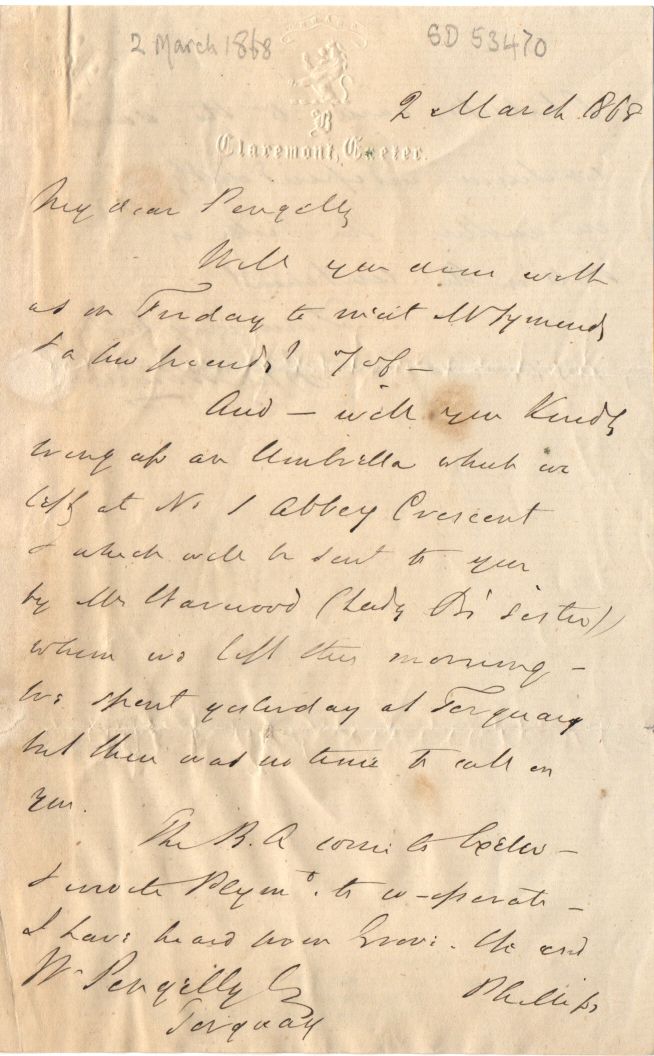 2 March 1868
SD 53470
B
Claremont, Exeter.
2 March 1868
My dear Pengelly
Will you dine with
us on Friday to meet Mr Symonds
& a few friends? 7 of —
And — will you kindly
bring up an Umbrella which we
left at No 1 Abbey Crescent
& which will be sent to you
by Mrs Harwood (Lady Bs' sister)
whom we left this morning —
We spent yesterday at Torquay
but there was no time to call on
you.
The B.A come to Exeter —
& invite Plymo. to co-operate —
I have heard from Grove. He and
Phillips
Wm Pengelly Esq
Torquay